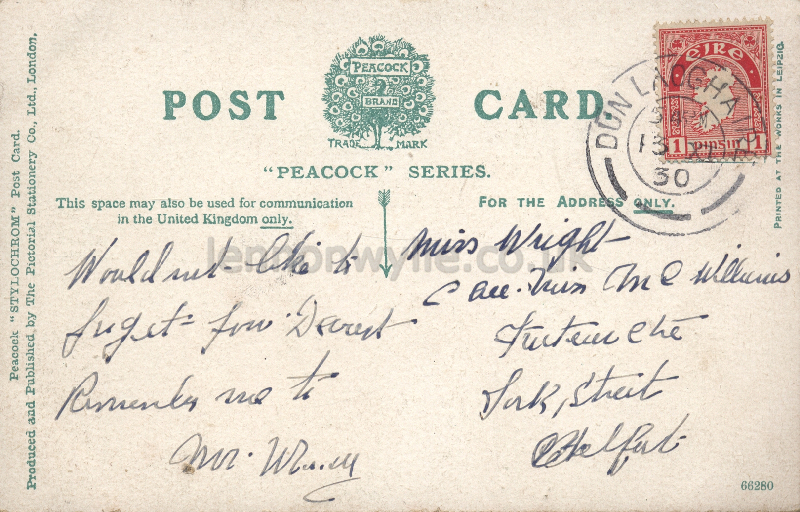 PEACOCK
BRAND
TRADE MARK
POST CARD.
"PEACOCK" SERIES.
This space may also be used for communication
in the United Kingdom only.
FOR THE ADDRESS ONLY.
Would not like to
forget you Dearest
Remember me to
Mr.
Miss Wright
Care. Miss Mc Williams
York, Street
Belfast
EIRE
1 PINSIN 1
DUN LAOGHA
13
30
Peacock "STYLOCHROM" Post Card.
Produced and Published by The Pictorial Stationery Co., Ltd., London.
PRINTED AT THE WORKS IN LEIPZIG.
66280
lennonwylie.co.uk